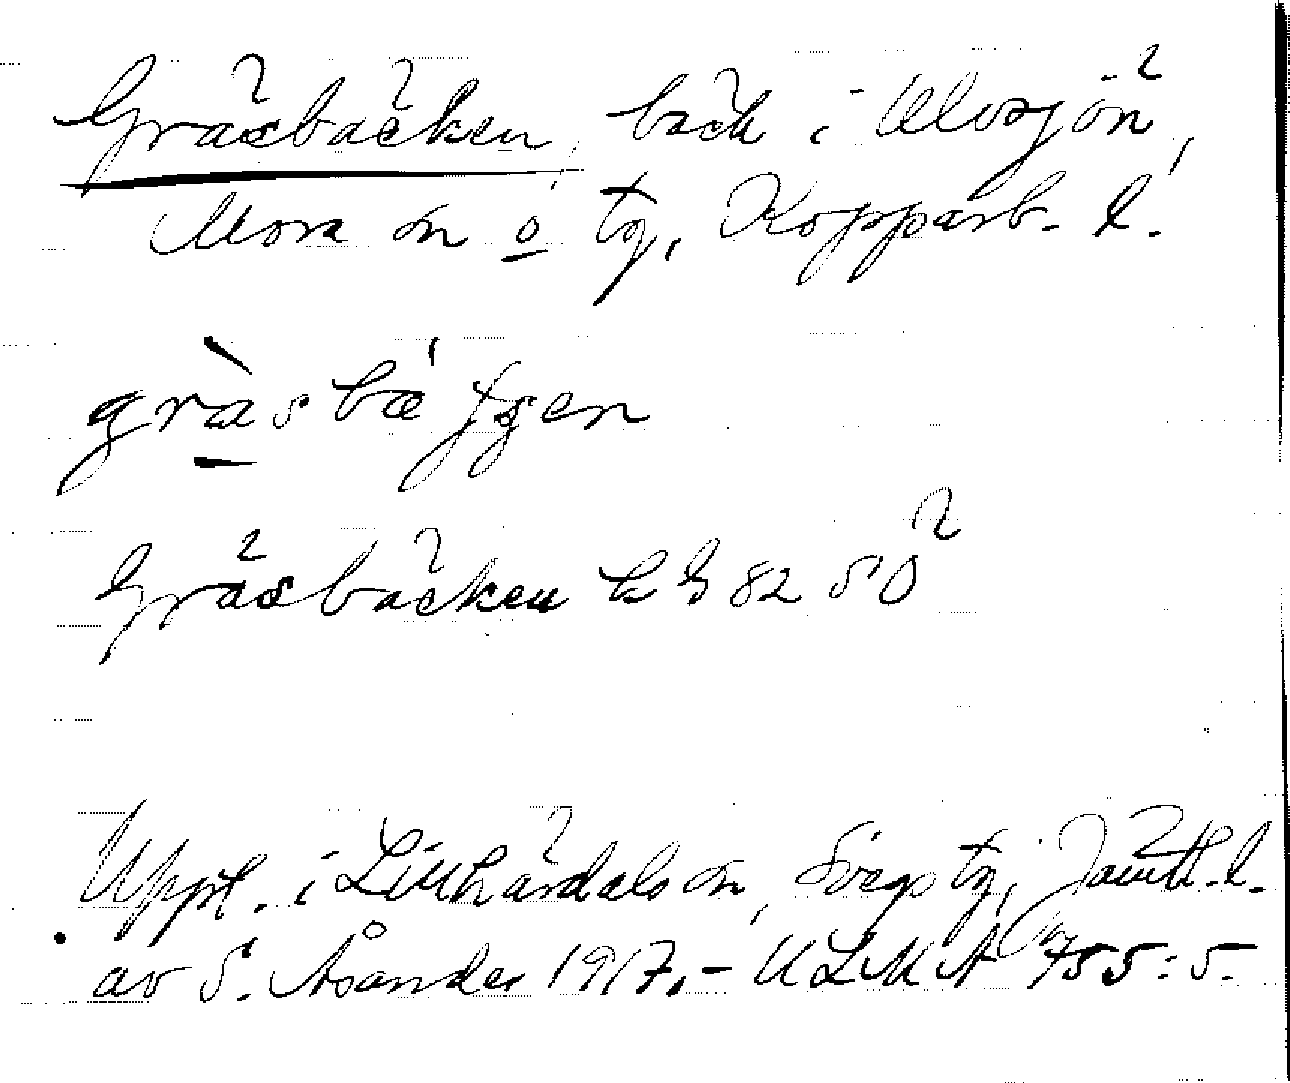 Gräsbäcken, bäck i Ulvsjön,
Mora sn o tg, Kopparb. l.
gràsbǽʃʃen
Gräsbäcken kG 82 SÖ
Uppt. i Linhärdals sn, Svegs tg, Jämtl. l.
av S. Åsander 1917. - ULMA 755:5.